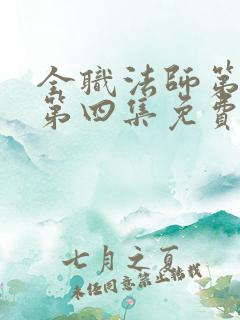 全职法师第
第四集免费
七月之夏
未经同意禁止转载